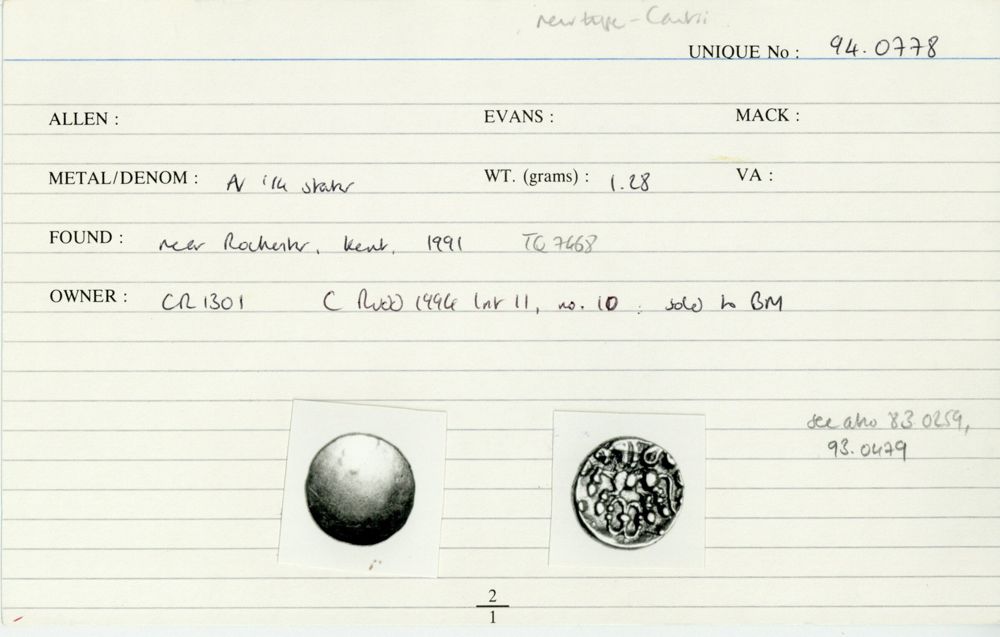 new type - Cantii
UNIQUE No : 94.0778
ALLEN : EVANS : MACK :
METAL/DENOM : AV 1/4 stater WT. (grams) : 1.28 VA :
FOUND : near Rochester, Kent, 1991 TQ 7468
OWNER : CR 1301 C Rudd 1994 list 11, no. 10 : sold to BM
see also 83.0259,
93.0479
2
1